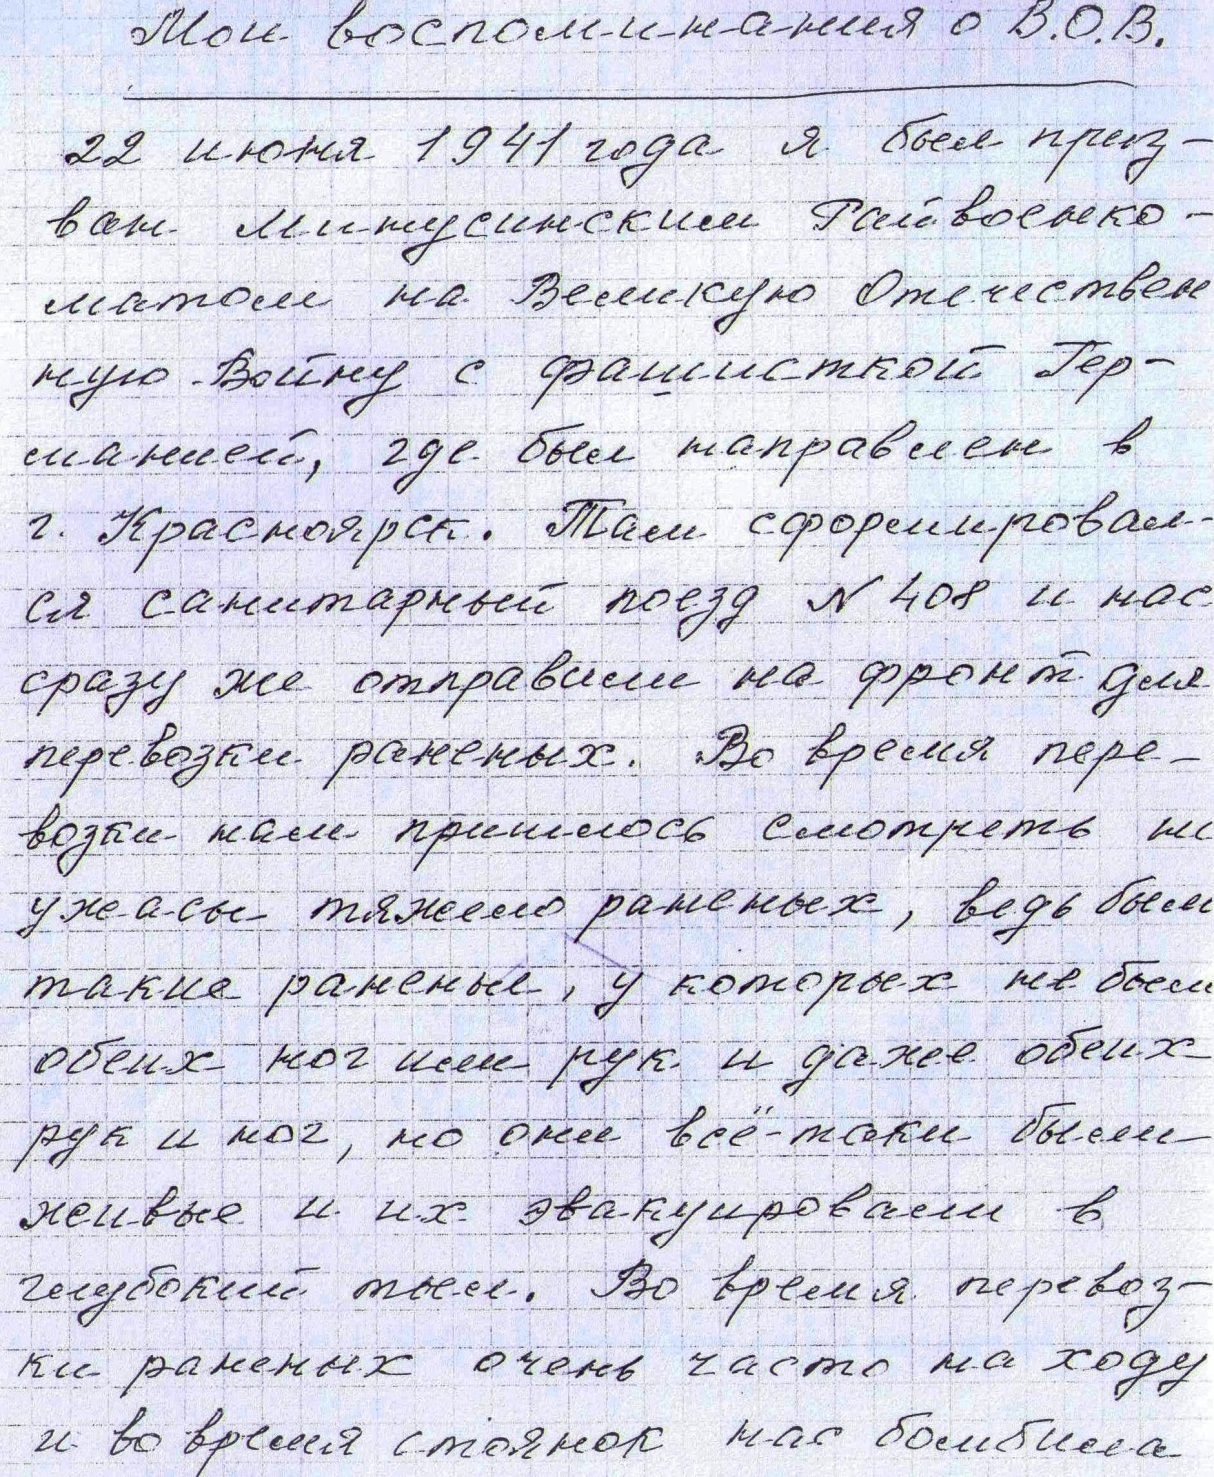 Мои воспоминания о В.О.В.
22 июня 1941 года я был приз-
ван Минусинским Райвоенко-
матом на Великую Отечествен
ную Войну с фашисткой Гер-
манией, где был направлен в
г. Красноярск. Там сформировал-
ся санитарный поезд N 408 и нас
сразу же отправили на фронт для
перевозки раненых. Во время пере-
возки нам пришлось смотреть на
ужасы тяжело раненых, ведь были
такие раненые, у которых не было
обеих ног или рук и даже обеих
рук и ног, но они всё-таки были
живые и их эвакуировали в
глубокий тыл. Во время перевоз-
ки раненых очень часто на ходу
и во время стоянок нас бомбила